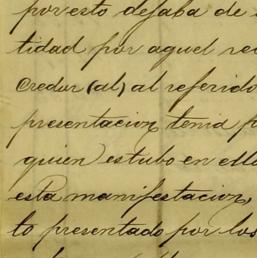 por esto dejaba de
tidad por aquel re
Credor (al) al referido
presentacion, tenia p
quien estubo en ello
esta manifestacion,
to presentado por los